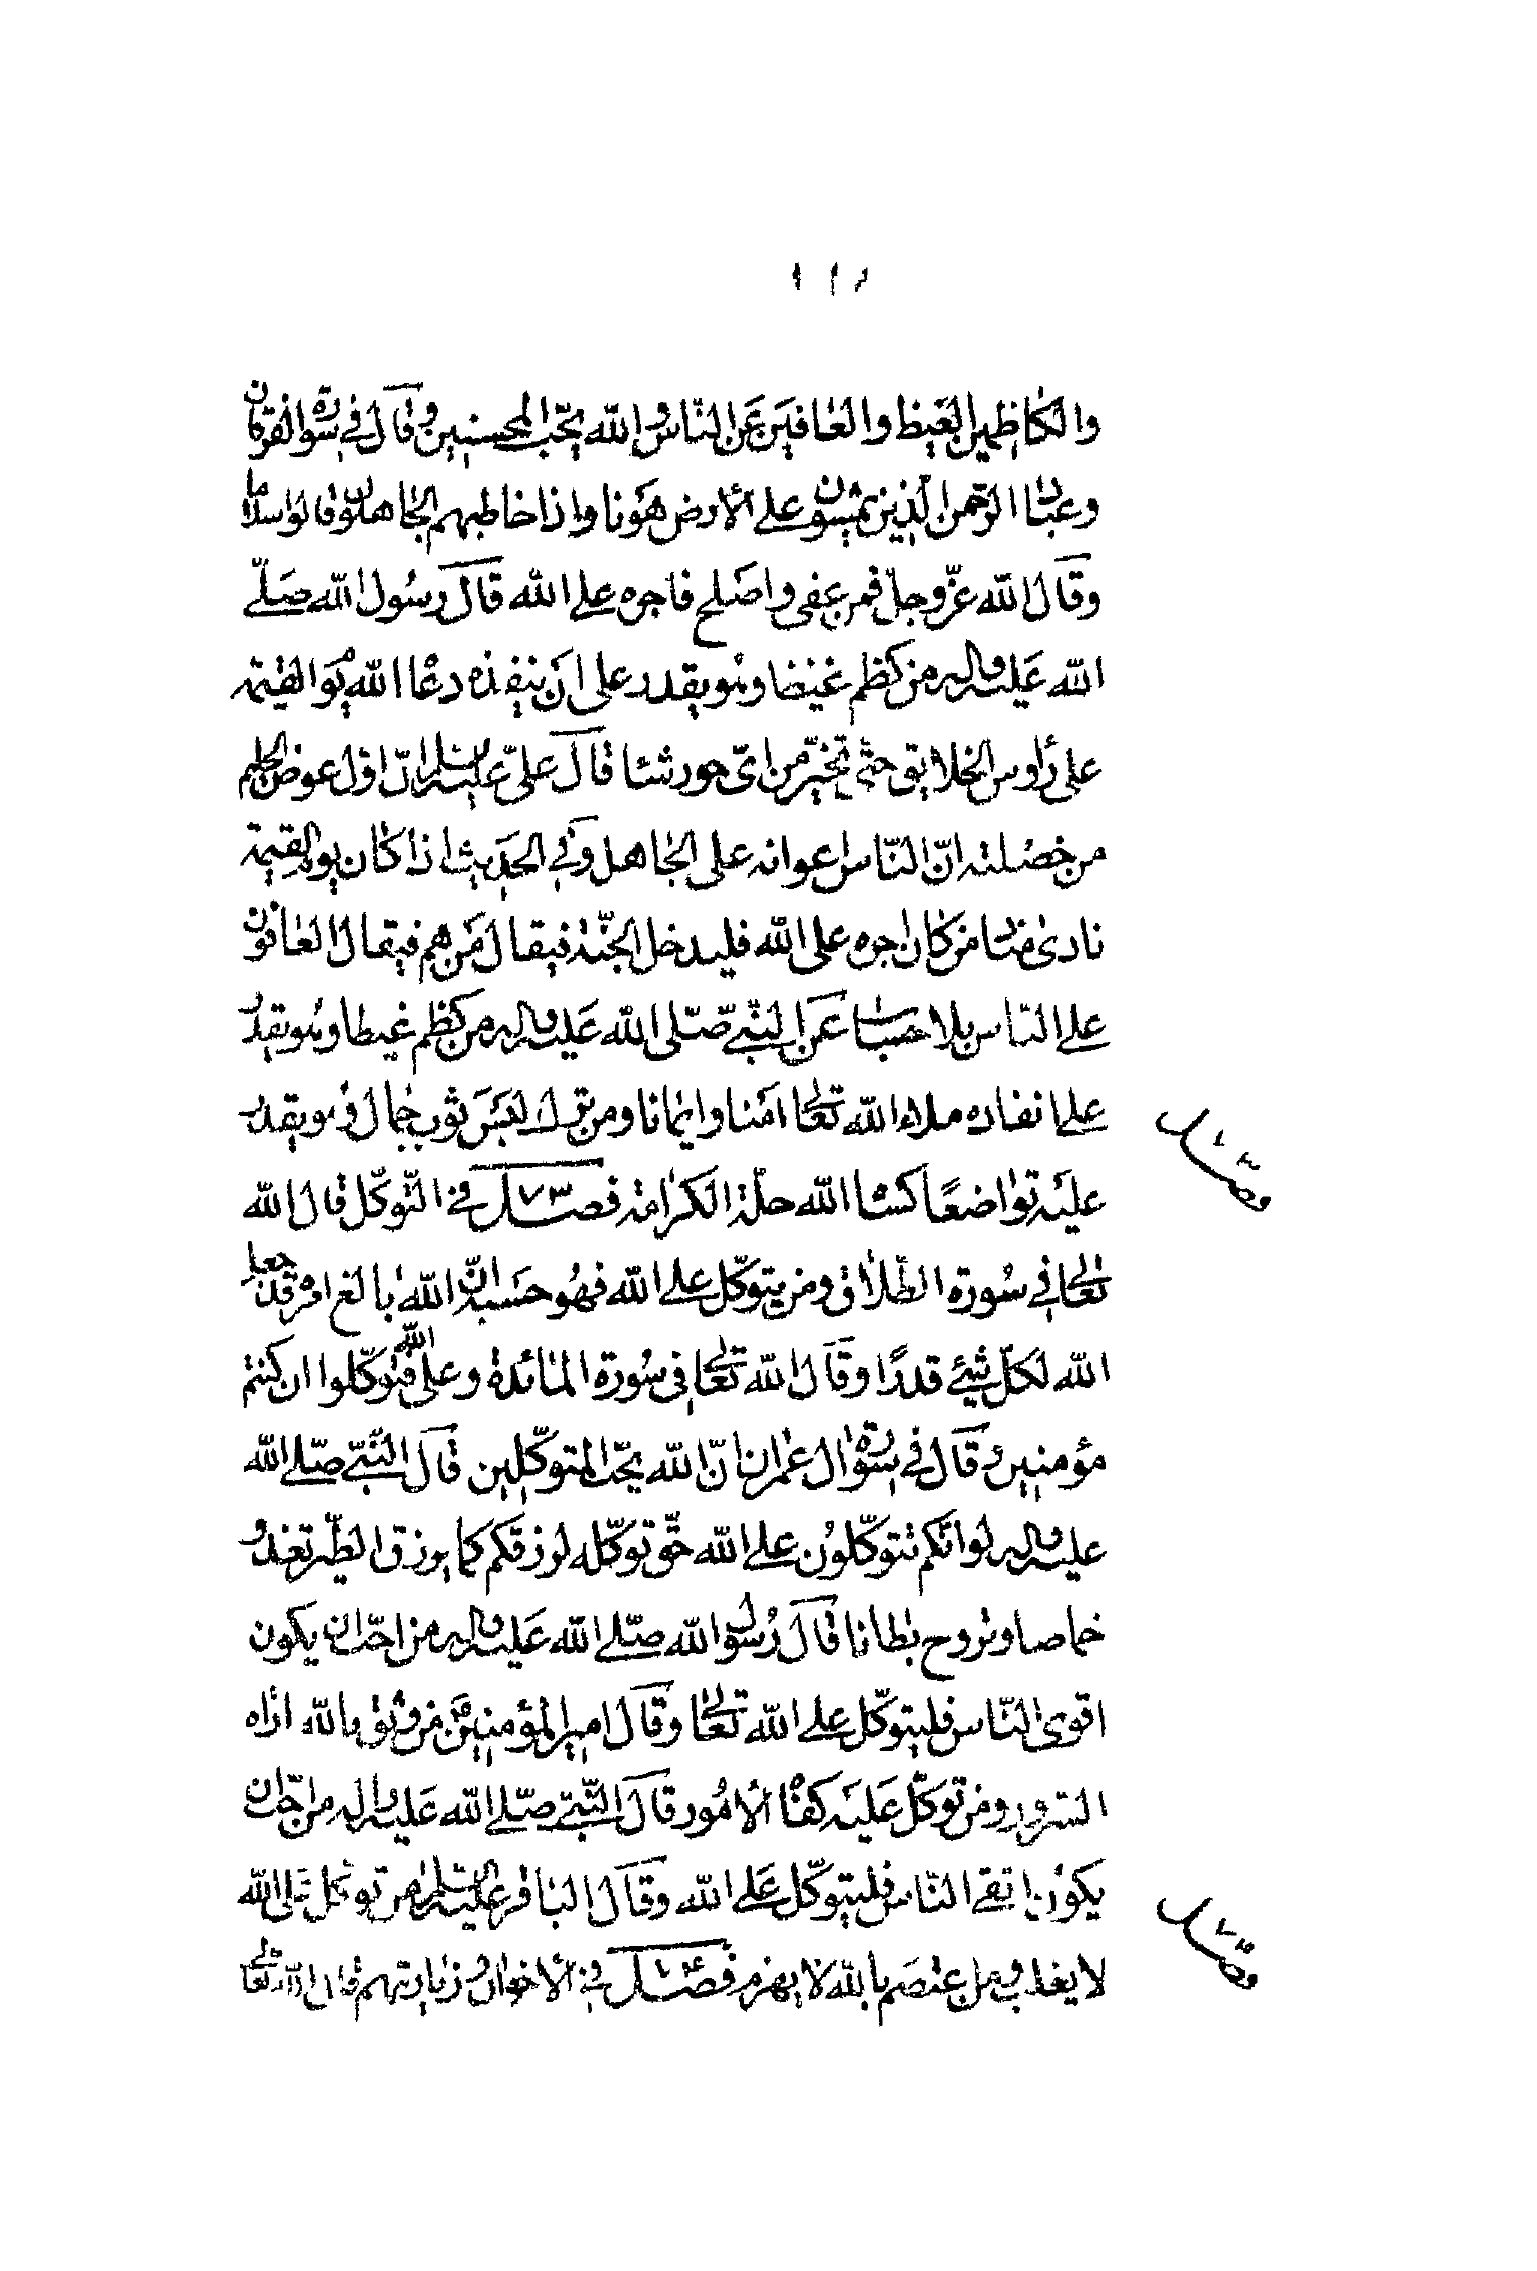 والكاظمين الغيظ والعافين عن الناس والله يحب المحسنين وقال في سورة الفرقان
وعباد الرحمن الذين يمشون على الأرض هونا واذا خاطبهم الجاهلون قالوا سلاما
وقال الله عزّ وجلّ فمن عفى واصلح فاجره على الله قال رسول الله صلّى
الله عليه واله من كظم غيضا وهو يقدر على ان ينفذه دعا الله يوم القيمة
على رأوس الخلايق حتى تخيّر من اىّ حور شاء قال علىّ عليه السلام انّ اول عوض الحليم
من خصلته انّ النّاس اعوانه على الجاهل وفي الحديث اذا كان يوم القيمة
نادى مناد من كان اجره على الله فليدخل الجنّة فيقال من هم فيقال العافون
على الناس بلا حساب عن النبىّ صّلى الله عليه واله من كظم غيطا وهو يقدر
على انفاده ملاه الله تعالى امنا وايمانا ومن ترك لبس ثوب جمال وهو يقدر
عليه تواضعًا كساه الله حلّة الكرامة فصل ٧٣ في التّوكّل قال الله
تعالى في سورة الطّلاق ومن يتوكّل على الله فهو حسبه انّ الله بالغ امره قد جعل
الله لكلّ شيئ قدرًا وقال الله تعالى في سورة المائدة وعلى الله فتوكّلوا ان كنتم
مؤمنين وقال في سورة ال عمران انّ الله يحبّ المتوكّلين قال النّبىّ صّلى الله
عليه واله لو انّكم تتوكّلون على الله حقّ توكّله لرزقكم كما يرزق الطّير تغدو
خماصا وتروح بطانا قال رسول الله صّلى الله عليه واله من احبّ ان يكون
اقوى النّاس فليتوكّل على الله تعالى وقال امير المؤمنين من وثق بالله اراه
السّرور ومن توكّل عليه كفاه الأمور قال النّبىّ صّلى الله عليه واله من احبّ ان
يكون اتقى النّاس فليتوكّل على الله وقال الباقر عليه السلام من توكل على الله
لا يغلب ومن اعتصم بالله لا يهزم فصل في الأخوان وزيارتهم قال الله تعالى
فصل ٧٣
فصل